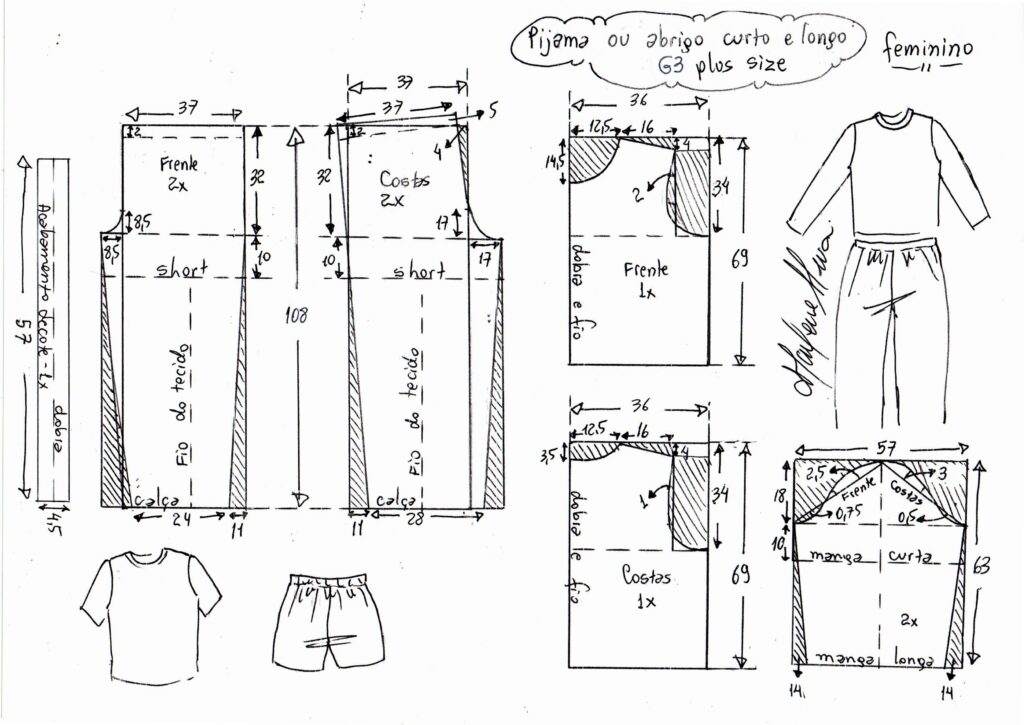 Pijama ou abrigo curto e longo
G3 plus size
feminino
37
2
Frente
2x
32
8,5
8,5
10
short
108
Fio do tecido
calça
24
11
57
Acabamento decote - 1x
dobra
4,5
37
37
5
2
4
Costas
2x
32
17
17
10
short
Fio do tecido
calça
11
28
36
12,5
16
14,5
4
2
34
69
Frente
1x
dobra e fio
36
12,5
16
3,5
4
1
34
69
Costas
1x
dobra e fio
Marlene Mukai
57
2,5
3
Frente
Costas
18
0,75
0,5
10
manga curta
63
2x
manga longa
14
14